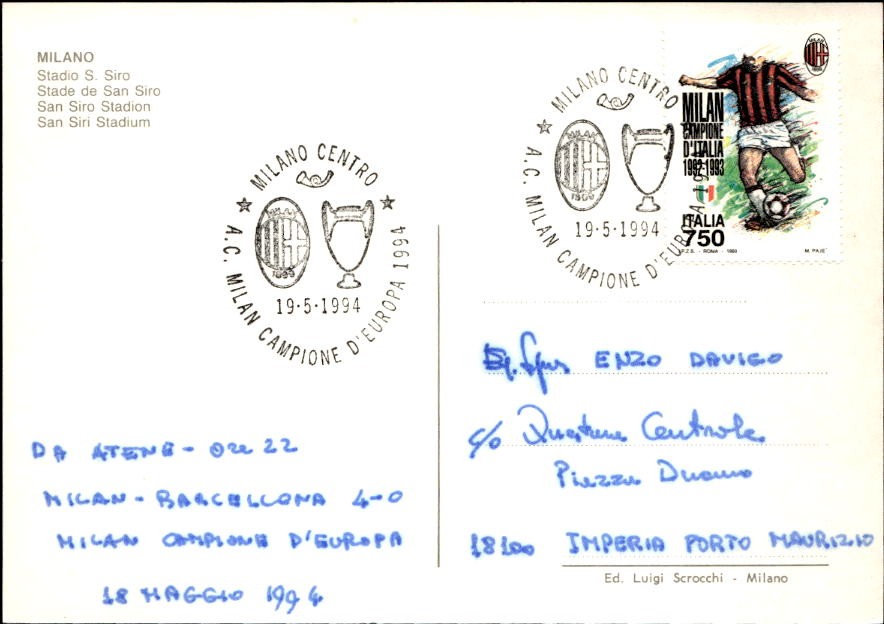 MILANO
Stadio S. Siro
Stade de San Siro
San Siro Stadion
San Siri Stadium
MILANO CENTRO
1899
19·5·1994
A.C. MILAN CAMPIONE D'EUROPA 1994
MILANO CENTRO
1899
19·5·1994
A.C. MILAN CAMPIONE D'EUROPA 1994
MILAN
1899
MILAN
CAMPIONE
D'ITALIA
1992-1993
ITALIA
750
I.P.Z.S. - ROMA - 1993 M. PAJE'
ENZO DAVIGO
c/o Questura Centrale
Piazza Duomo
18100 IMPERIA PORTO MAURIZIO
DA ATENE - Ore 22
MILAN - BARCELLONA 4-0
MILAN CAMPIONE D'EUROPA
18 MAGGIO 1994
Ed. Luigi Scrocchi - Milano